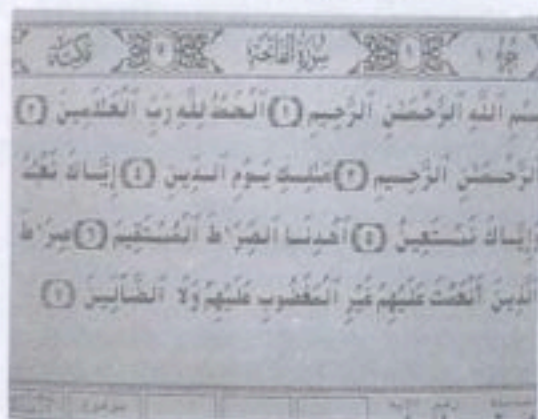 جزء ١ ١ سورة الفاتحة ٧ مكية
بِسْمِ اللَّهِ الرَّحْمَٰنِ الرَّحِيمِ (١) الْحَمْدُ لِلَّهِ رَبِّ الْعَالَمِينَ (٢)
الرَّحْمَٰنِ الرَّحِيمِ (٣) مَالِكِ يَوْمِ الدِّينِ (٤) إِيَّاكَ نَعْبُدُ
وَإِيَّاكَ نَسْتَعِينُ (٥) اهْدِنَا الصِّرَاطَ الْمُسْتَقِيمَ (٦) صِرَاطَ
الَّذِينَ أَنْعَمْتَ عَلَيْهِمْ غَيْرِ الْمَغْضُوبِ عَلَيْهِمْ وَلَا الضَّالِّينَ (٧)